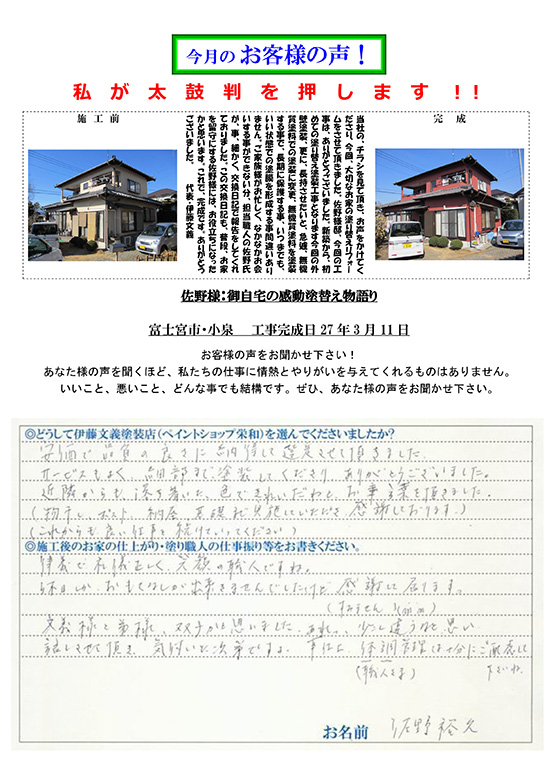 今月の お客様の声！
私が太鼓判を押します!!
施工前
当社の、チラシを見て頂き、お声をかけてく
ださり、今回、大切なお家の塗り替えリフォー
ムをさせて頂きました、佐野様邸、今回の工
事は、ありがとうございました、新築から、初
めての塗り替え塗装工事となります今回の外
壁塗装、更に、長持させたいと、急遽、無機
質塗料での塗装に変更、無機質塗料を塗装
する事で、長期に保護する事、いつまでも、
いい状態での塗膜を形成する事間違いあり
ません、ご家族様がお忙しく、なかなかお会
いする事ができない分、担当職人の佐野氏
が、事、細かく、交換日記で報告をしてくれ
ておりました、この交換日記も、普段、お家
を留守にする佐野様には、お役立ちになった
かと思います、これで、完成です、ありがとう
ございました、　代表・伊藤文義
完成
佐野様：御自宅の感動塗替え物語り
富士宮市・小泉　工事完成日 27 年 3 月 11 日
お客様の声をお聞かせ下さい！
あなた様の声を聞くほど、私たちの仕事に情熱とやりがいを与えてくれるものはありません。
いいこと、悪いこと、どんな事でも結構です。ぜひ、あなた様の声をお聞かせ下さい。
◎どうして伊藤文義塗装店（ペイントショップ栄和）を選んでくださいましたか？
安価で品質の良さに納得して選ばせて頂きました。
サービスもよく、細部まで塗装してくださり、ありがとうございました。
近隣からも、落ち着いた色できれいだわと、お言葉を頂きました。
（物干し、ポスト、納屋、基礎も見積にいただき感謝しております。）
（これからも良い仕事を続けていってください）
◎施工後のお家の仕上がり・塗り職人の仕事振り等をお書きください。
律義で礼儀正しく、笑顔の職人ですね。
休日しか、おもてなしが出来ませんでしたけど、感謝して居ります。
（すみません）
文義様と弟様、双子かと思いました。あれっ、少し違うなと思い
話しさせて頂き、気付いた次第ですよ。事故と体調管理は十分にご配慮して
（職人さま）　下さいね。
お名前　佐野裕久